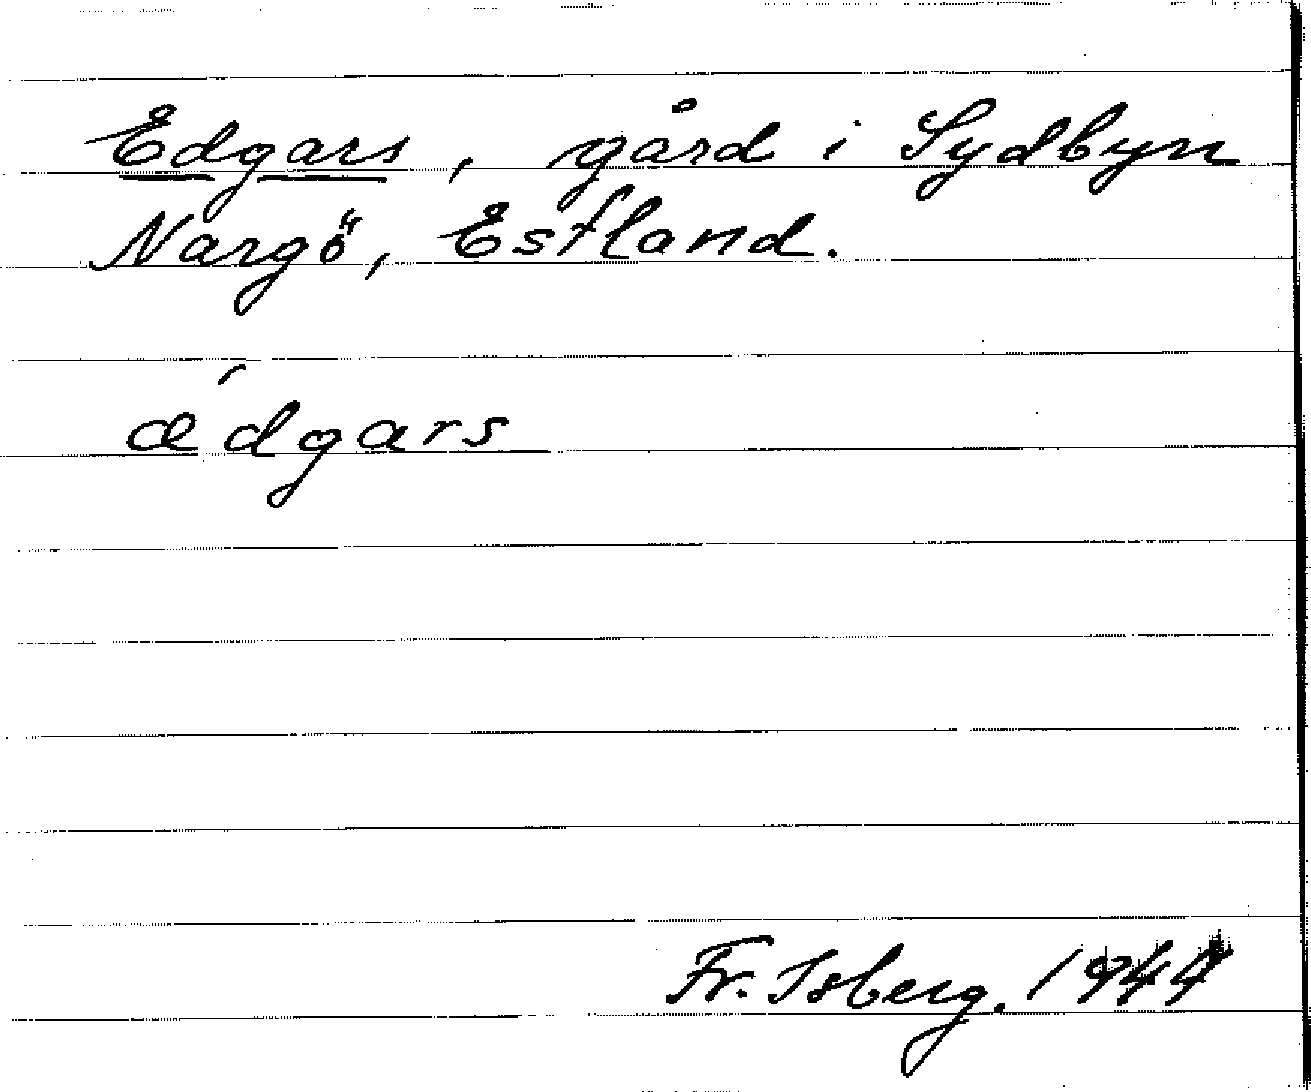 Edgars, gård i Sydbyn
Nargö, Estland.
æ´dgars
Fr. Isberg. 1944